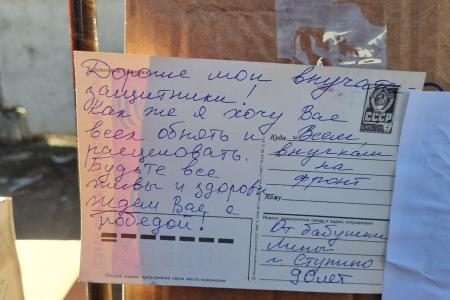 Дорогие мои внучата-
защитники!
Как же я хочу Вас
всех обнять и
расцеловать.
Будьте все
живы и здоровы
Ждем Вас с
победой!
СССР
Куда Всем
внучкам
на
фронт
Кому
Индекс предприятия связи и адрес отправителя
От бабушки
Лины
г. Ступино
90 лет
Пишите индекс предприятия связи места назначения